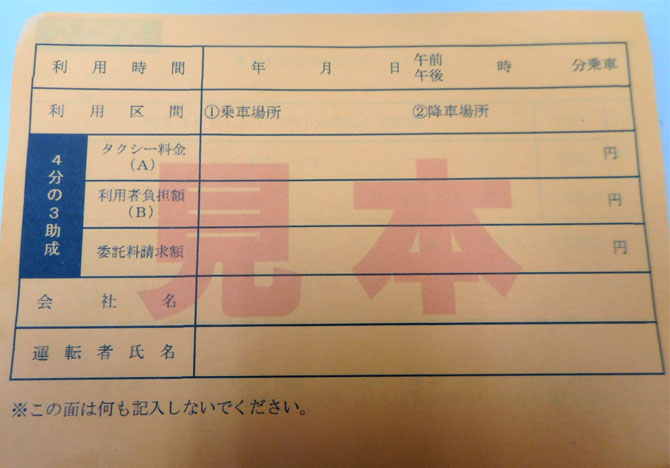 利用時間 年 月 日 午前 午後 時 分乗車
利用区間 ①乗車場所 ②降車場所
4分の3助成
タクシー料金(A) 円
利用者負担額(B) 円
委託料請求額 円
会社名
運転者氏名
見本
※この面は何も記入しないでください。